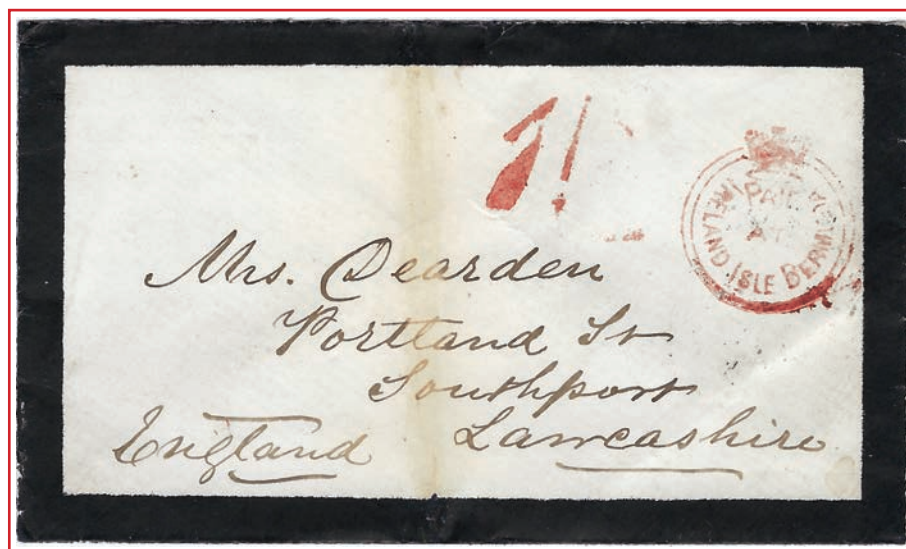 1/
PAID
IRELAND ISLE BERMUDA
Mrs. Dearden
Portland St
Southport
Lancashire
England